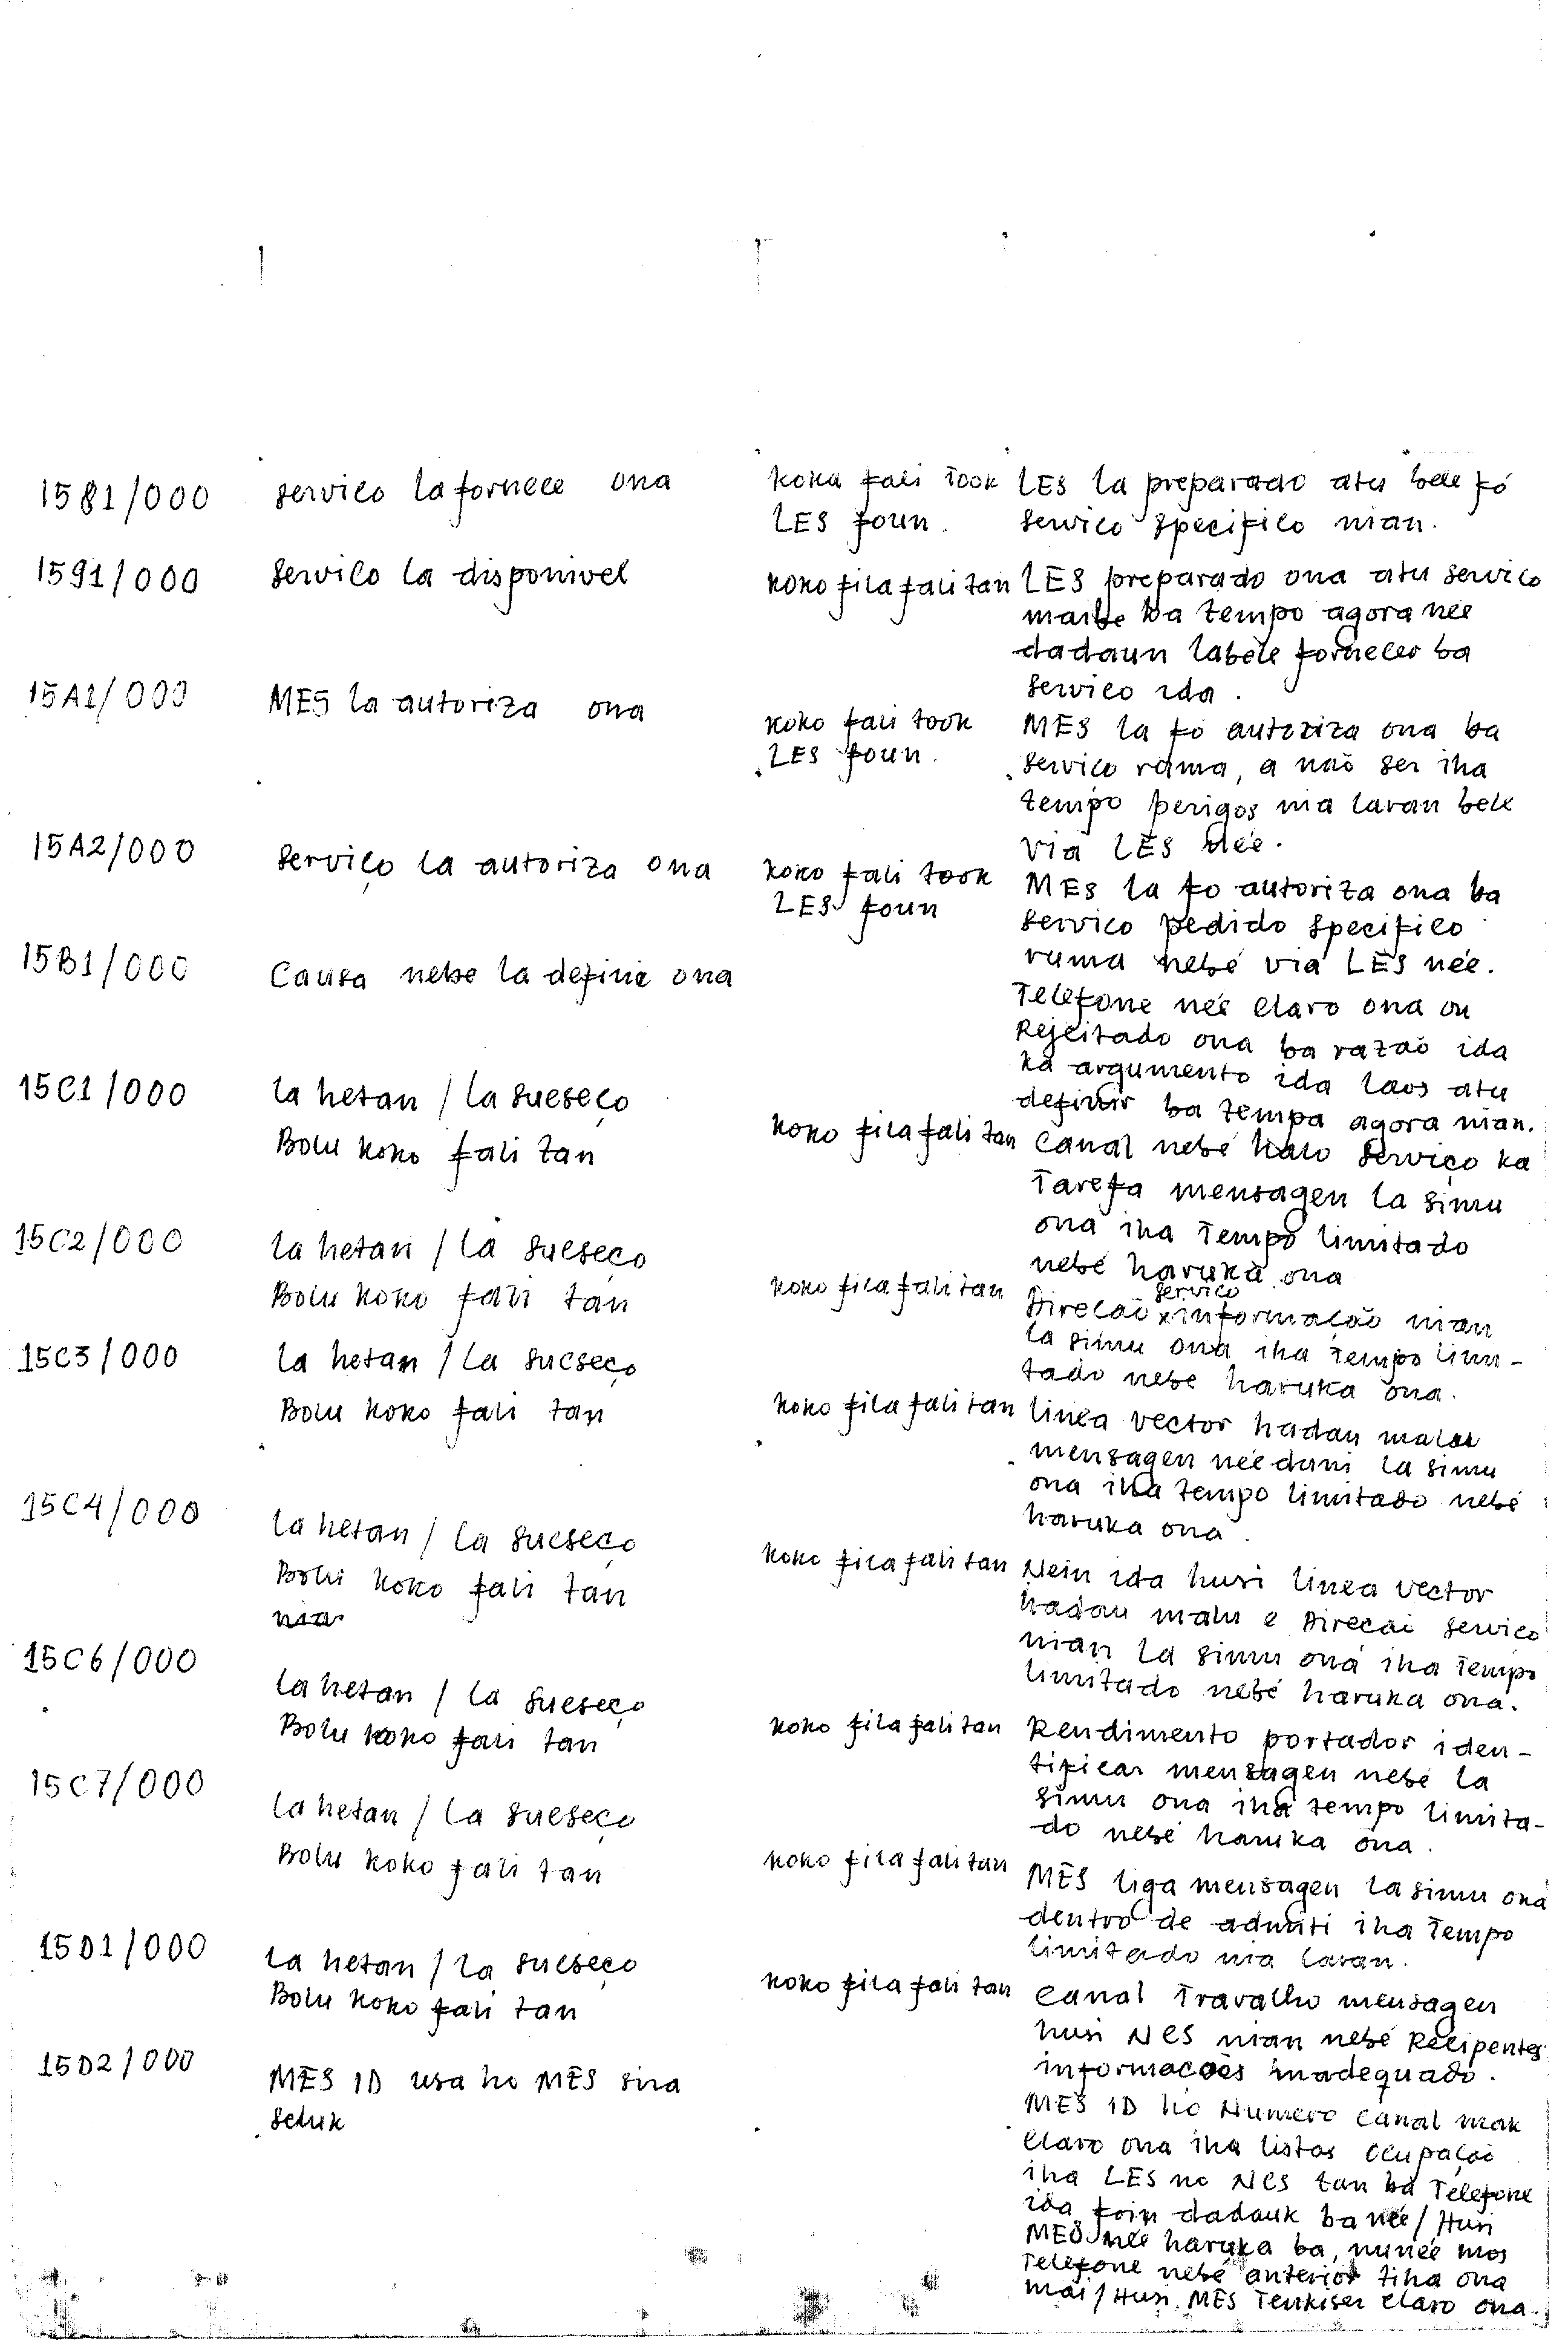 1581/000 serviço la fornece ona koka fali took LES la preparado atu bele fó
LES foun. serviço specifico nian.
1591/000 serviço la disponivel koko fila fali tan LES preparado ona atu serviço
maibe ba tempo agora neé
dadaun labele fornecer ba
serviço ida.
15A1/000 MES la autoriza ona koko fali took MES la fó autoriza ona ba
LES foun. serviço rama, a naõ ser iha
tempo perigos nia laran bele
via LES neé.
15A2/000 serviço la autoriza ona koko fali took MES la fo autoriza ona ba
LES foun serviço pedido specifico
rama nebé via LES neé.
15B1/000 Causa nebe la definie ona Telefone neé claro ona ou
Rejeitado ona ba razaõ ida
ka argumento ida laos atu
definir ba tempa agora nian.
15C1/000 la hetan / la sucseço koko fila fali tan Canal nebé halo serviço ka
Bolu koko fali tan Tarefa mensagen la simu
ona iha Tempo limitado
nebé haruka ona
15C2/000 la hetan / la sucseço koko fila fali tan Direcaõ serviço x informaçaõ nian
Bolu koko fali tan la simu ona iha Tempo limi-
tado nebe haruka ona.
15C3/000 la hetan / la sucseço koko fila fali tan linea vector hadau malu
Bolu koko fali tan mensagen neé duni la simu
ona iha tempo limitado nebé
haruka ona.
15C4/000 la hetan / la sucseço koko fila fali tan Nein ida husi linea vector
Bolu koko fali tan hadau malu e Direcai serviço
nia nian la simu ona iha Tempo
limitado nebé haruka ona.
15C6/000 la hetan / la sucseço koko fila fali tan Rendimento portador iden-
Bolu koko fali tan tificar mensagen nebé la
simu ona iha tempo limita-
do nebé haruka ona.
15C7/000 la hetan / la sucseço koko fila fali tan MES liga mensagen la simu ona
Bolu koko fali tan dentro de admiti iha Tempo
limitado nia laran.
15D1/000 la hetan / la sucseço koko fila fali tan Canal Travalho mensagen
Bolu koko fali tan husi NCS nian nebé Recipentes
informacoẽs inadequado.
15D2/000 MES ID usa ho MES sira MES ID ho Numero Canal mak
seluk claro ona iha listas Ocupaçaõ
iha LES no NCS tan ba Telefone
ida foin dadauk ba neé / Husi
MES neé haruka ba, nuneé mos
Telefone nebé anterior tiha ona
mai / Husi MES claro ona.